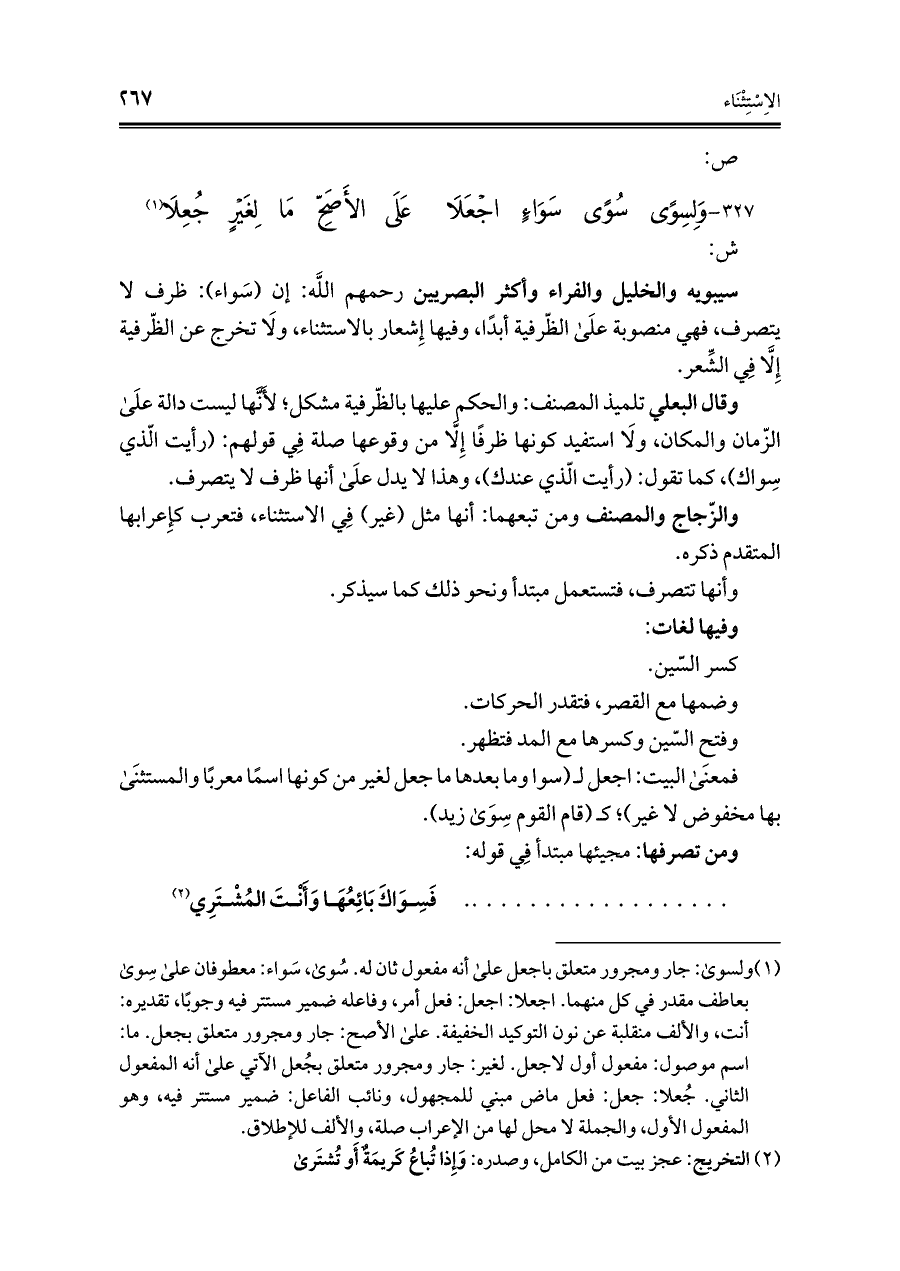 الاِسْتِثْنَاء ٢٦٧
ص:
٣٢٧-وَلِسِوًى سُوًى سَوَاءٍ اجْعَلَا عَلَى الأَصَحِّ مَا لِغَيْرٍ جُعِلَا(١)
ش:
سيبويه والخليل والفراء وأكثر البصريين رحمهم اللَّه: إن (سَواء): ظرف لا
يتصرف، فهي منصوبة علَىٰ الظّرفية أبدًا، وفيها إِشعار بالاستثناء، ولَا تخرج عن الظّرفية
إِلَّا فِي الشِّعر.
وقال البعلي تلميذ المصنف: والحكم عليها بالظّرفية مشكل؛ لأَنَّها ليست دالة علَىٰ
الزّمان والمكان، ولَا استفيد كونها ظرفًا إِلَّا من وقوعها صلة فِي قولهم: (رأيت الّذي
سِواك)، كما تقول: (رأيت الّذي عندك)، وهذا لا يدل علَىٰ أنها ظرف لا يتصرف.
والزّجاج والمصنف ومن تبعهما: أنها مثل (غير) فِي الاستثناء، فتعرب كإِعرابها
المتقدم ذكره.
وأنها تتصرف، فتستعمل مبتدأ ونحو ذلك كما سيذكر.
وفيها لغات:
كسر السّين.
وضمها مع القصر، فتقدر الحركات.
وفتح السّين وكسرها مع المد فتظهر.
فمعنَىٰ البيت: اجعل لـ (سوا وما بعدها ما جعل لغير من كونها اسمًا معربًا والمستثنَىٰ
بها مخفوض لا غير)؛ كـ (قام القوم سِوَىٰ زيد).
ومن تصرفها: مجيئها مبتدأ فِي قوله:
. . . . . . . . . . . . . . . . . . .. فَسِـوَاكَ بَائِعُهَـا وَأَنْـتَ المُشْـتَرِي(٢)
(١)ولسوىٰ: جار ومجرور متعلق باجعل علىٰ أنه مفعول ثان له. سُوىٰ، سَواء: معطوفان علىٰ سِوىٰ
بعاطف مقدر في كل منهما. اجعلا: اجعل: فعل أمر، وفاعله ضمير مستتر فيه وجوبًا، تقديره:
أنت، والألف منقلبة عن نون التوكيد الخفيفة. علىٰ الأصح: جار ومجرور متعلق بجعل. ما:
اسم موصول: مفعول أول لاجعل. لغير: جار ومجرور متعلق بجُعل الآتي علىٰ أنه المفعول
الثاني. جُعلا: جعل: فعل ماض مبني للمجهول، ونائب الفاعل: ضمير مستتر فيه، وهو
المفعول الأول، والجملة لا محل لها من الإعراب صلة، والألف للإطلاق.
(٢) التخريج: عجز بيت من الكامل، وصدره: وَإِذا تُباعُ كَريمَةٌ أَو تُشتَرىٰ